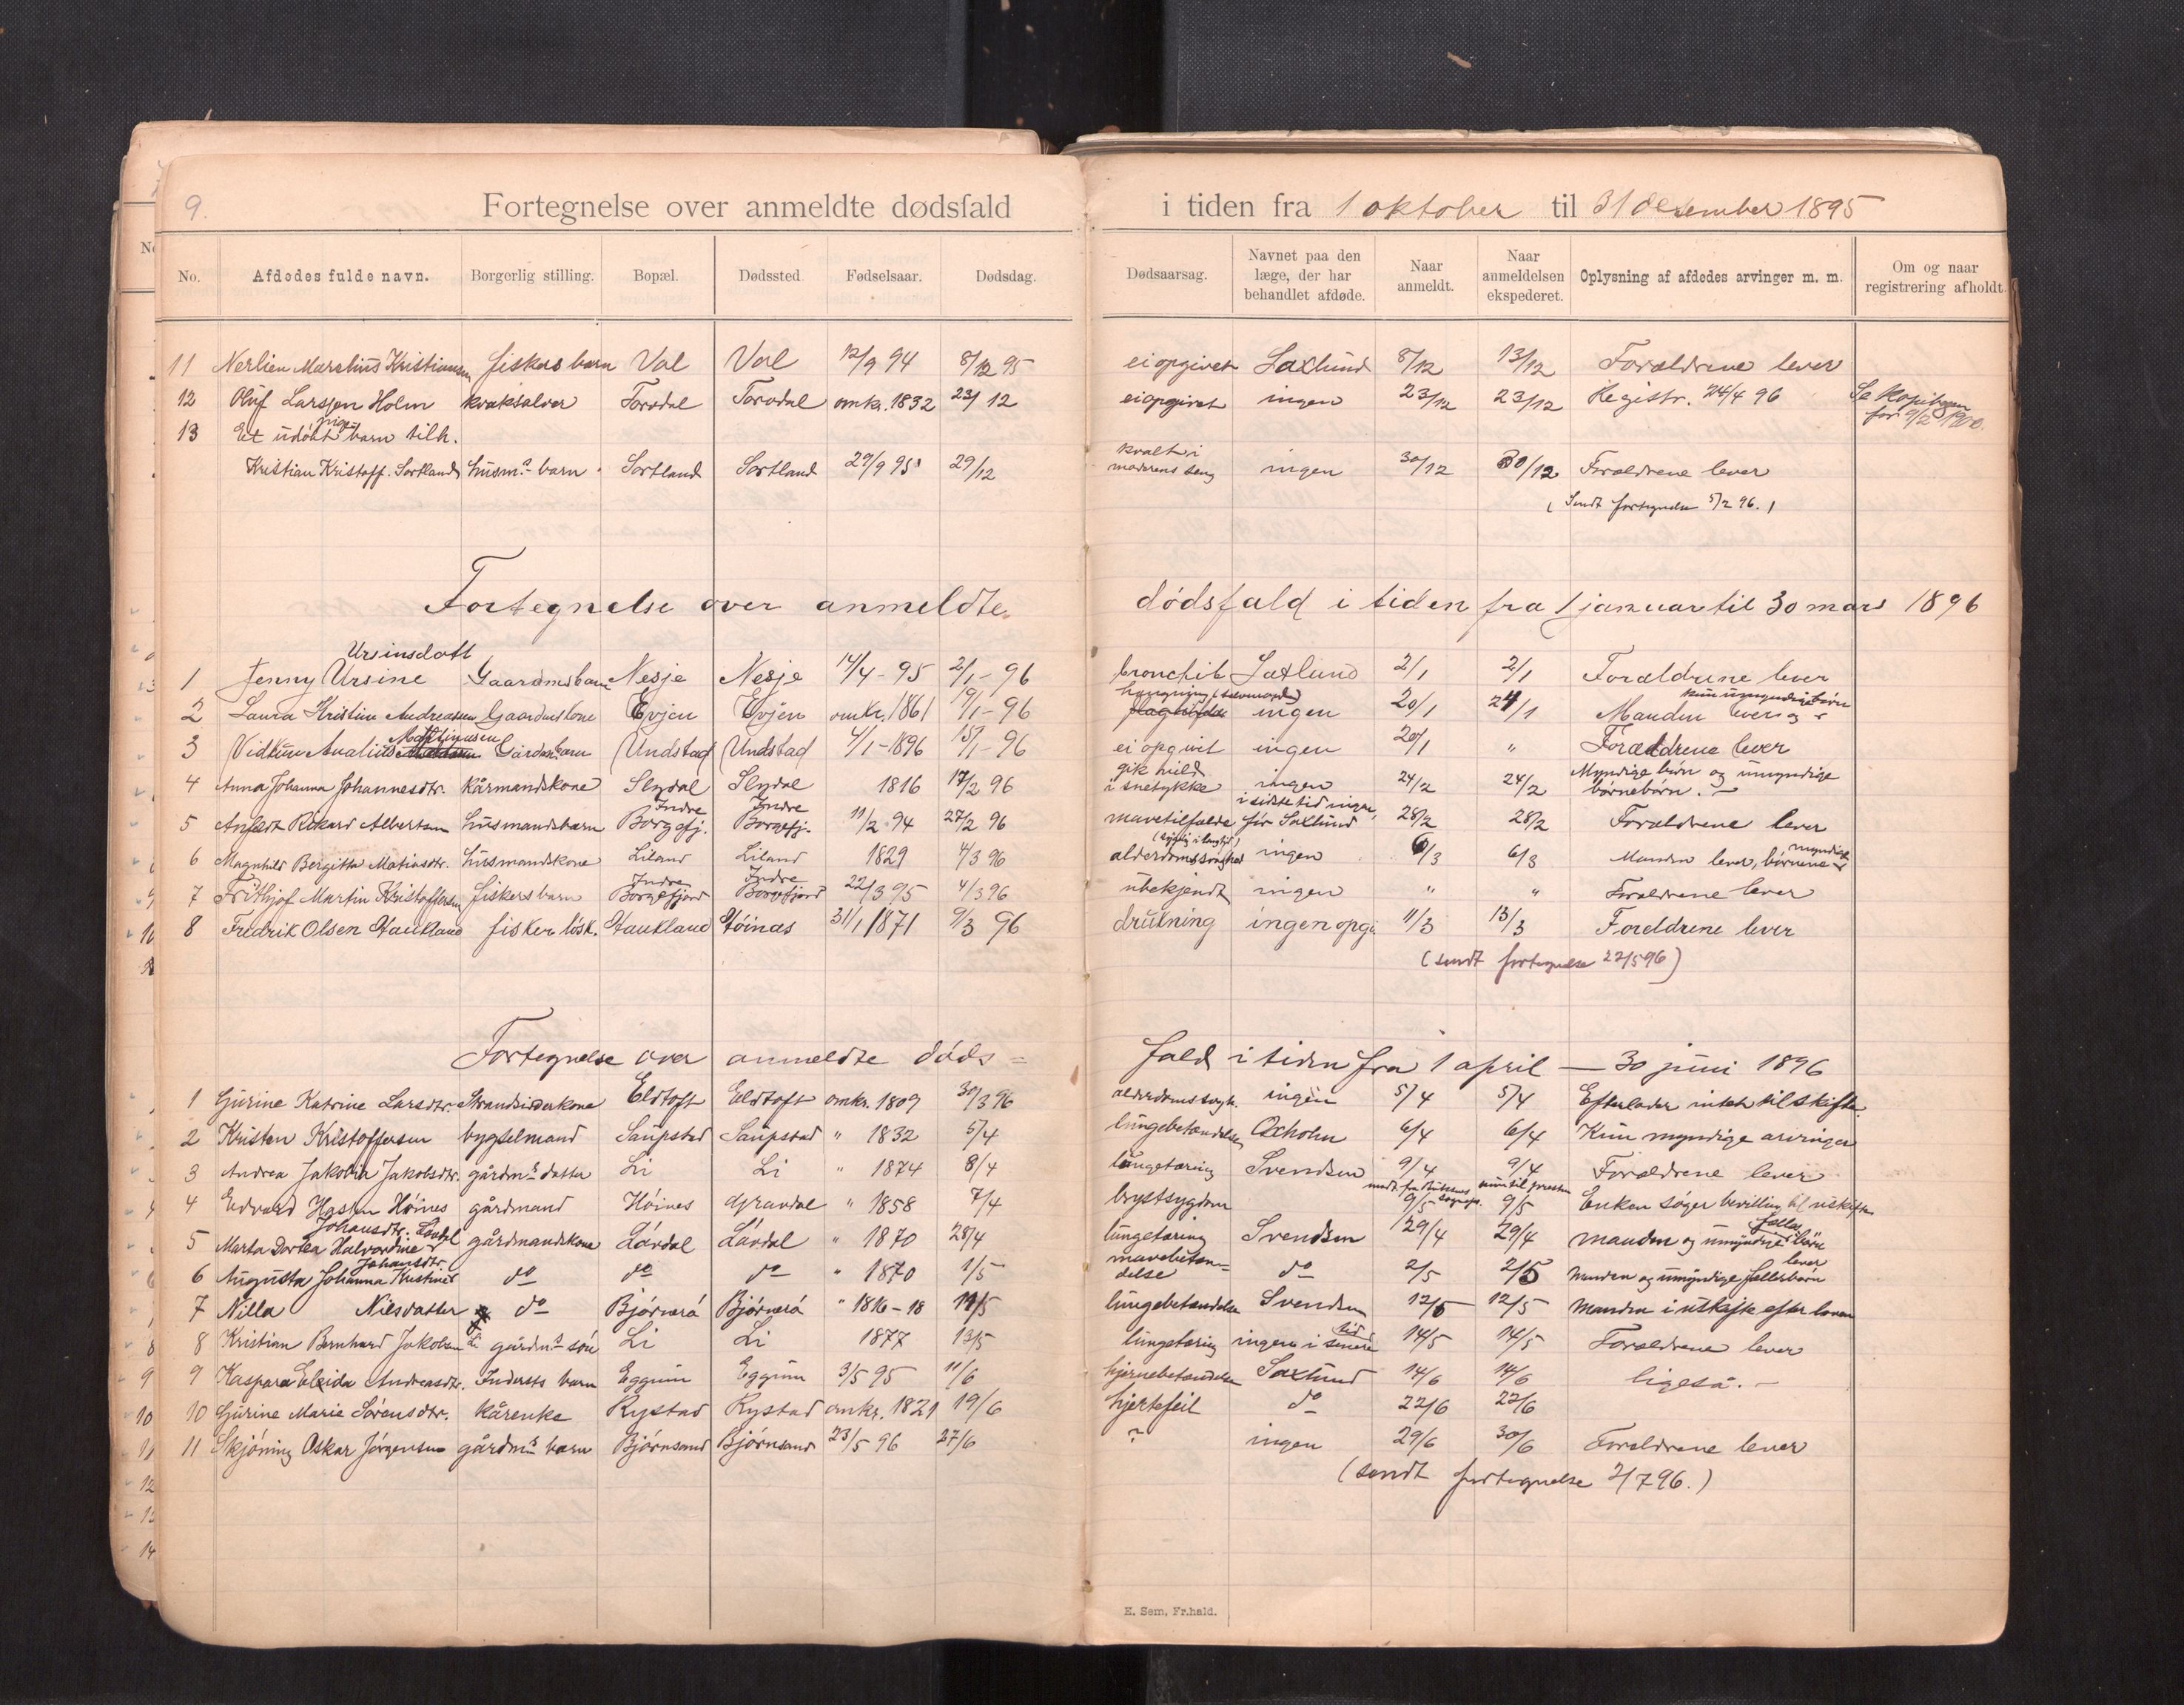 9.
Fortegnelse over anmeldte dødsfald i tiden fra 1 oktober til 31 desember 1895
No. Afdødes fulde navn. Borgerlig stilling. Bopæl. Dødssted Fødselsaar. Dødsdag. Dødsaarsag. Navnet paa den læge, der har behandlet afdøde. Naar anmeldt. Naar anmeldelsen ekspederet. Oplysning af afdødes arvinger m. m. Om og naar registrering afholdt.
11 Nerlien Marelius Kristiansen fiskers barn Val Val 12/9 94 8/12 95 ei opgivet Saxlund 8/12 13/12 Forældrene lever
12 Oluf Larssen Holm kvaksalver Torvdal Torvdal omkr. 1832 23/12 ei opgivet ingen 23/12 23/12 Registr. 24/4 96 Se kopibogen for 9/2 1900.
13 Et udöbt pige barn tilh.
Kristian Kristoff. Sortland husm.s barn Sortland Sortland 29/9 95 29/12 kvalt i moderens seng ingen 30/12 30/12 Forældrene lever
(Sendt fortegnelse 5/2 96.)
Fortegnelse over anmeldte dödsfald i tiden fra 1 januar til 30 mars 1896
1 Jenny Ursine Ursinsdatt Gaardmsbarn Nesje Nesje 14/4-95 2/1-96 bronchit Saxlund 2/1 2/1 Forældrene lever
2 Laura Kristine Andreasen Gaardmskone Evjen Evjen omkr. 1861 19/1-96 hængning (selvmord) ingen 20/1 24/1 Manden lever og kun umyndige börn
3 Vidkun Analius Martinusen Gårdm.barn Undstad Undstad 4/1-1896 15/1-96 ei opgivet ingen 20/1 " Forældrene lever
4 Anna Johanna Johannesdtr. kårmandskone Slydal Slydal 1816 17/2 96 gik vild i snetykke ingen 24/2 24/2 Myndige börn og umyndige börnebörn.
5 Anfelt Rikard Albertsen husmandsbarn Indre Borgefj. Indre Borgefj. 11/2 94 27/2 96 mavetilfælde i sidste tid ingen, för Saxlund 28/2 28/2 Forældrene lever
6 Magnhild Bergitta Matiasdtr. husmandskone Liland Liland 1829 4/3 96 alderdomssvaghed ingen 6/3 6/3 Manden lever, börnene myndige
7 Frithjof Martin Kristoffersen fiskers barn Indre Borgefjord Indre Borgefjord 22/3 95 4/3 96 ubekjendt ingen " " Forældrene lever
8 Fredrik Olsen Haukland fisker lösk. Haukland Höinæs 31/1 1871 9/3 96 drukning ingen opgi 11/3 13/3 Foreldrene lever
(sendt fortegnelse 22/5 96)
Fortegnelse over anmeldte döds=fald i tiden fra 1 april — 30 juni 1896
1 Gurine Katrine Larsdtr. Strandsidderkone Eldtoft Eldtoft omkr. 1809 30/3 96 alderdomssvagh. ingen 5/4 5/4 Efterlader intet til skifte.
2 Kristen Kristoffersen bygselmand Saupstad Saupstad " 1832 5/4 lungebetændelse Oxholm 6/4 6/4 Kun myndige arvinger
3 Andrea Jakobia Jakobsdtr. gårdm.s datter Li Li " 1874 8/4 lungetæring Svendsen 9/4 9/4 Forældrene lever
4 Edvard Hagen Höines gårdmand Höines Gravdal " 1858 7/4 brystsygdom 9/5 9/5 Enken söger bevilling til uskiftet
5 Marta Dortea Halvordine Johansdtr. gårdmandskone Lövdal Lövdal " 1870 28/4 lungetæring Svendsen 29/4 29/4 manden og umyndige fælles börn
6 Augusta Johanna Kristine Johansdtr. do do do " 1870 1/5 mavebetændelse do 2/5 2/5 manden og umyndige fællesbörn lever
7 Nilla Nilsdatter do Björnerå Björnerå " 1816-18 11/5 lungebetændelse Svendsen 12/5 12/5 Manden i uskifte efter loven
8 Kristian Bernhard Jakobsen Li gårdm.s sön Li Li 1877 13/5 lungetæring ingen i senere tid 14/5 14/5 Forældrene lever
9 Kaspara Eleida Andreasdtr. Indersts barn Eggum Eggum 3/5 95 11/6 hjernebetændelse Saxlund 14/6 14/6 ligeså.
10 Gurine Marie Sörensdtr. kårenke Rystad Rystad omkr. 1821 19/6 hjertefeil do 22/6 22/6
11 Skjöning Oskar Jörgensen gårdm.s barn Björnsand Björnsand 23/5 96 27/6 ? ingen 29/6 30/6 Forældrene lever
(sendt fortegnelse 2/7 96.)
E. Sem, Fr.hald.